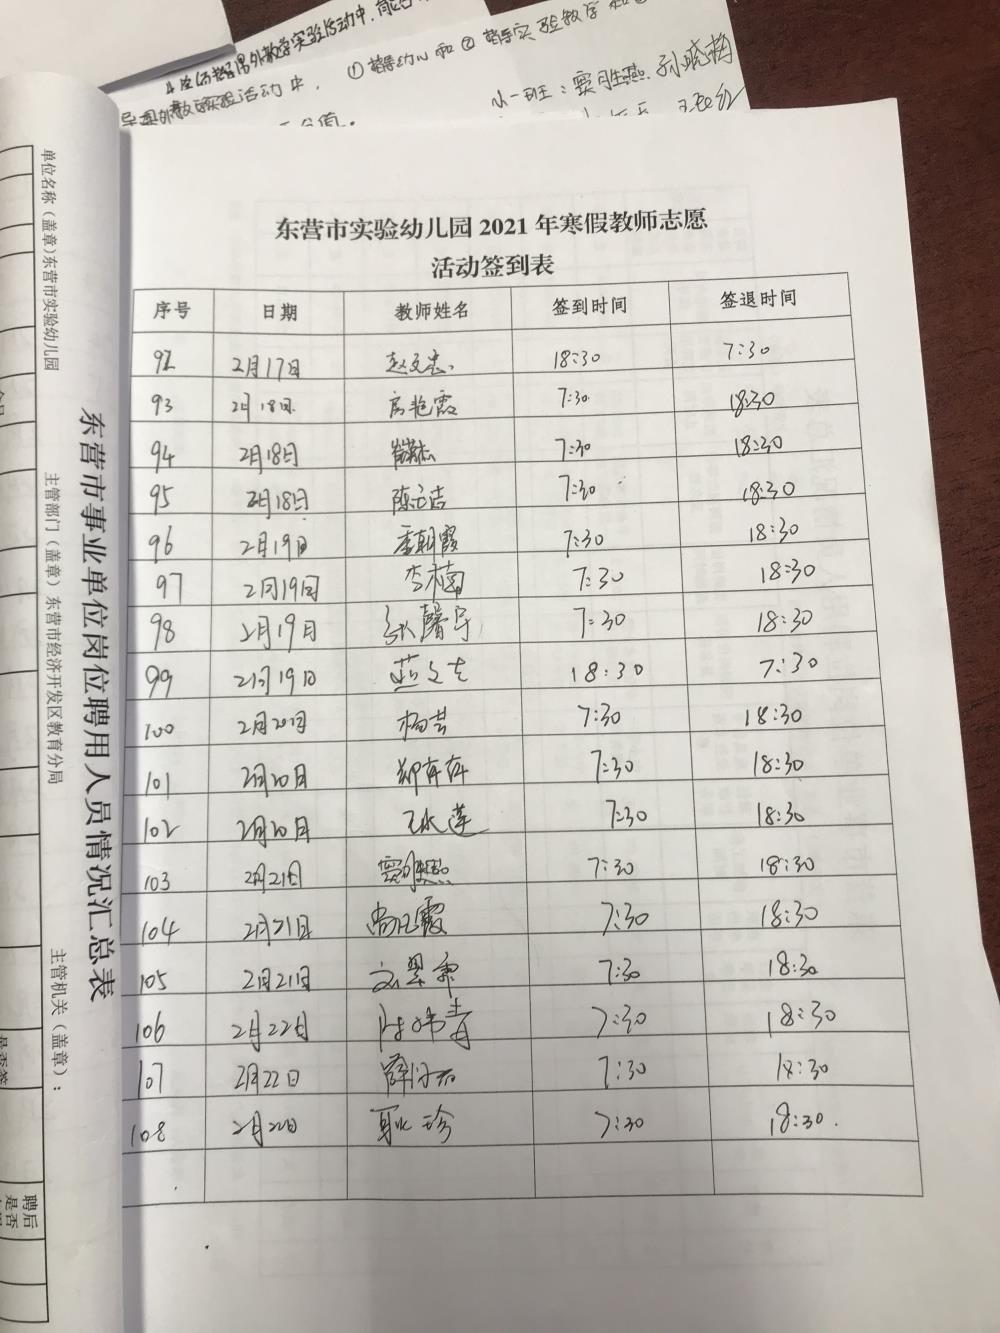 小一班：窦胜燕 孙晓梅
单位名称（盖章）东营市实验幼儿园
主管部门（盖章）东营市经济开发区教育分局
主管机关（盖章）：
东营市事业单位岗位聘用人员情况汇总表
聘后
是否
东营市实验幼儿园 2021 年寒假教师志愿
活动签到表
序号 日期 教师姓名 签到时间 签退时间
92 2月17日 18:30 7:30
93 2月18日 房艳霞 7:30 18:30
94 2月18日 7:30 18:30
95 2月18日 7:30 18:30
96 2月19日 季朝霞 7:30 18:30
97 2月19日 李楠 7:30 18:30
98 2月19日 张馨予 7:30 18:30
99 2月19日 18:30 7:30
100 2月20日 杨芸 7:30 18:30
101 2月20日 郑存存 7:30 18:30
102 2月20日 王冰莲 7:30 18:30
103 2月21日 窦胜燕 7:30 18:30
104 2月21日 7:30 18:30
105 2月21日 7:30 18:30
106 2月22日 7:30 18:30
107 2月22日 7:30 18:30
108 2月22日 耿珍 7:30 18:30.